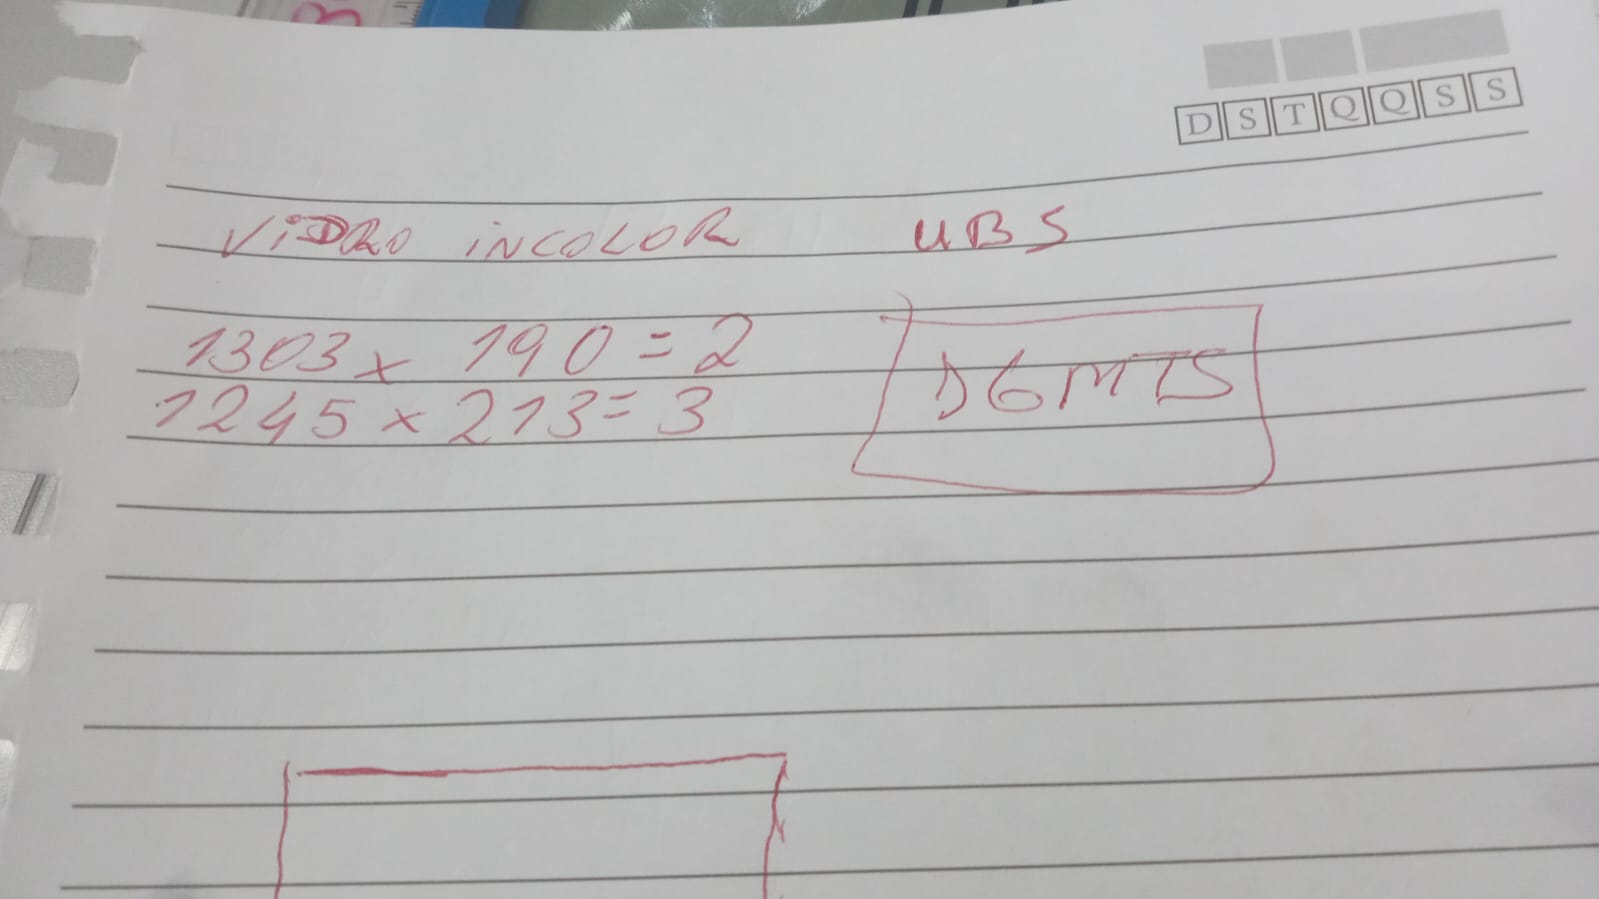 D S T Q Q S S
VIDRO INCOLOR UBS
1303 x 190 = 2
1245 x 213 = 3
D6MTS